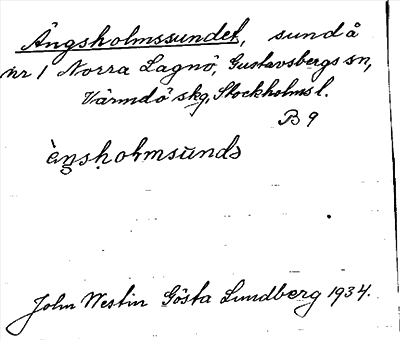 Ängsholmssundet, sund å
nr 1 Norra Lagnö, Gustavsbergs sn,
Värmdö skg, Stockholms l.
B 9
èŋsholmsund
John Westin Gösta Lundberg 1934.